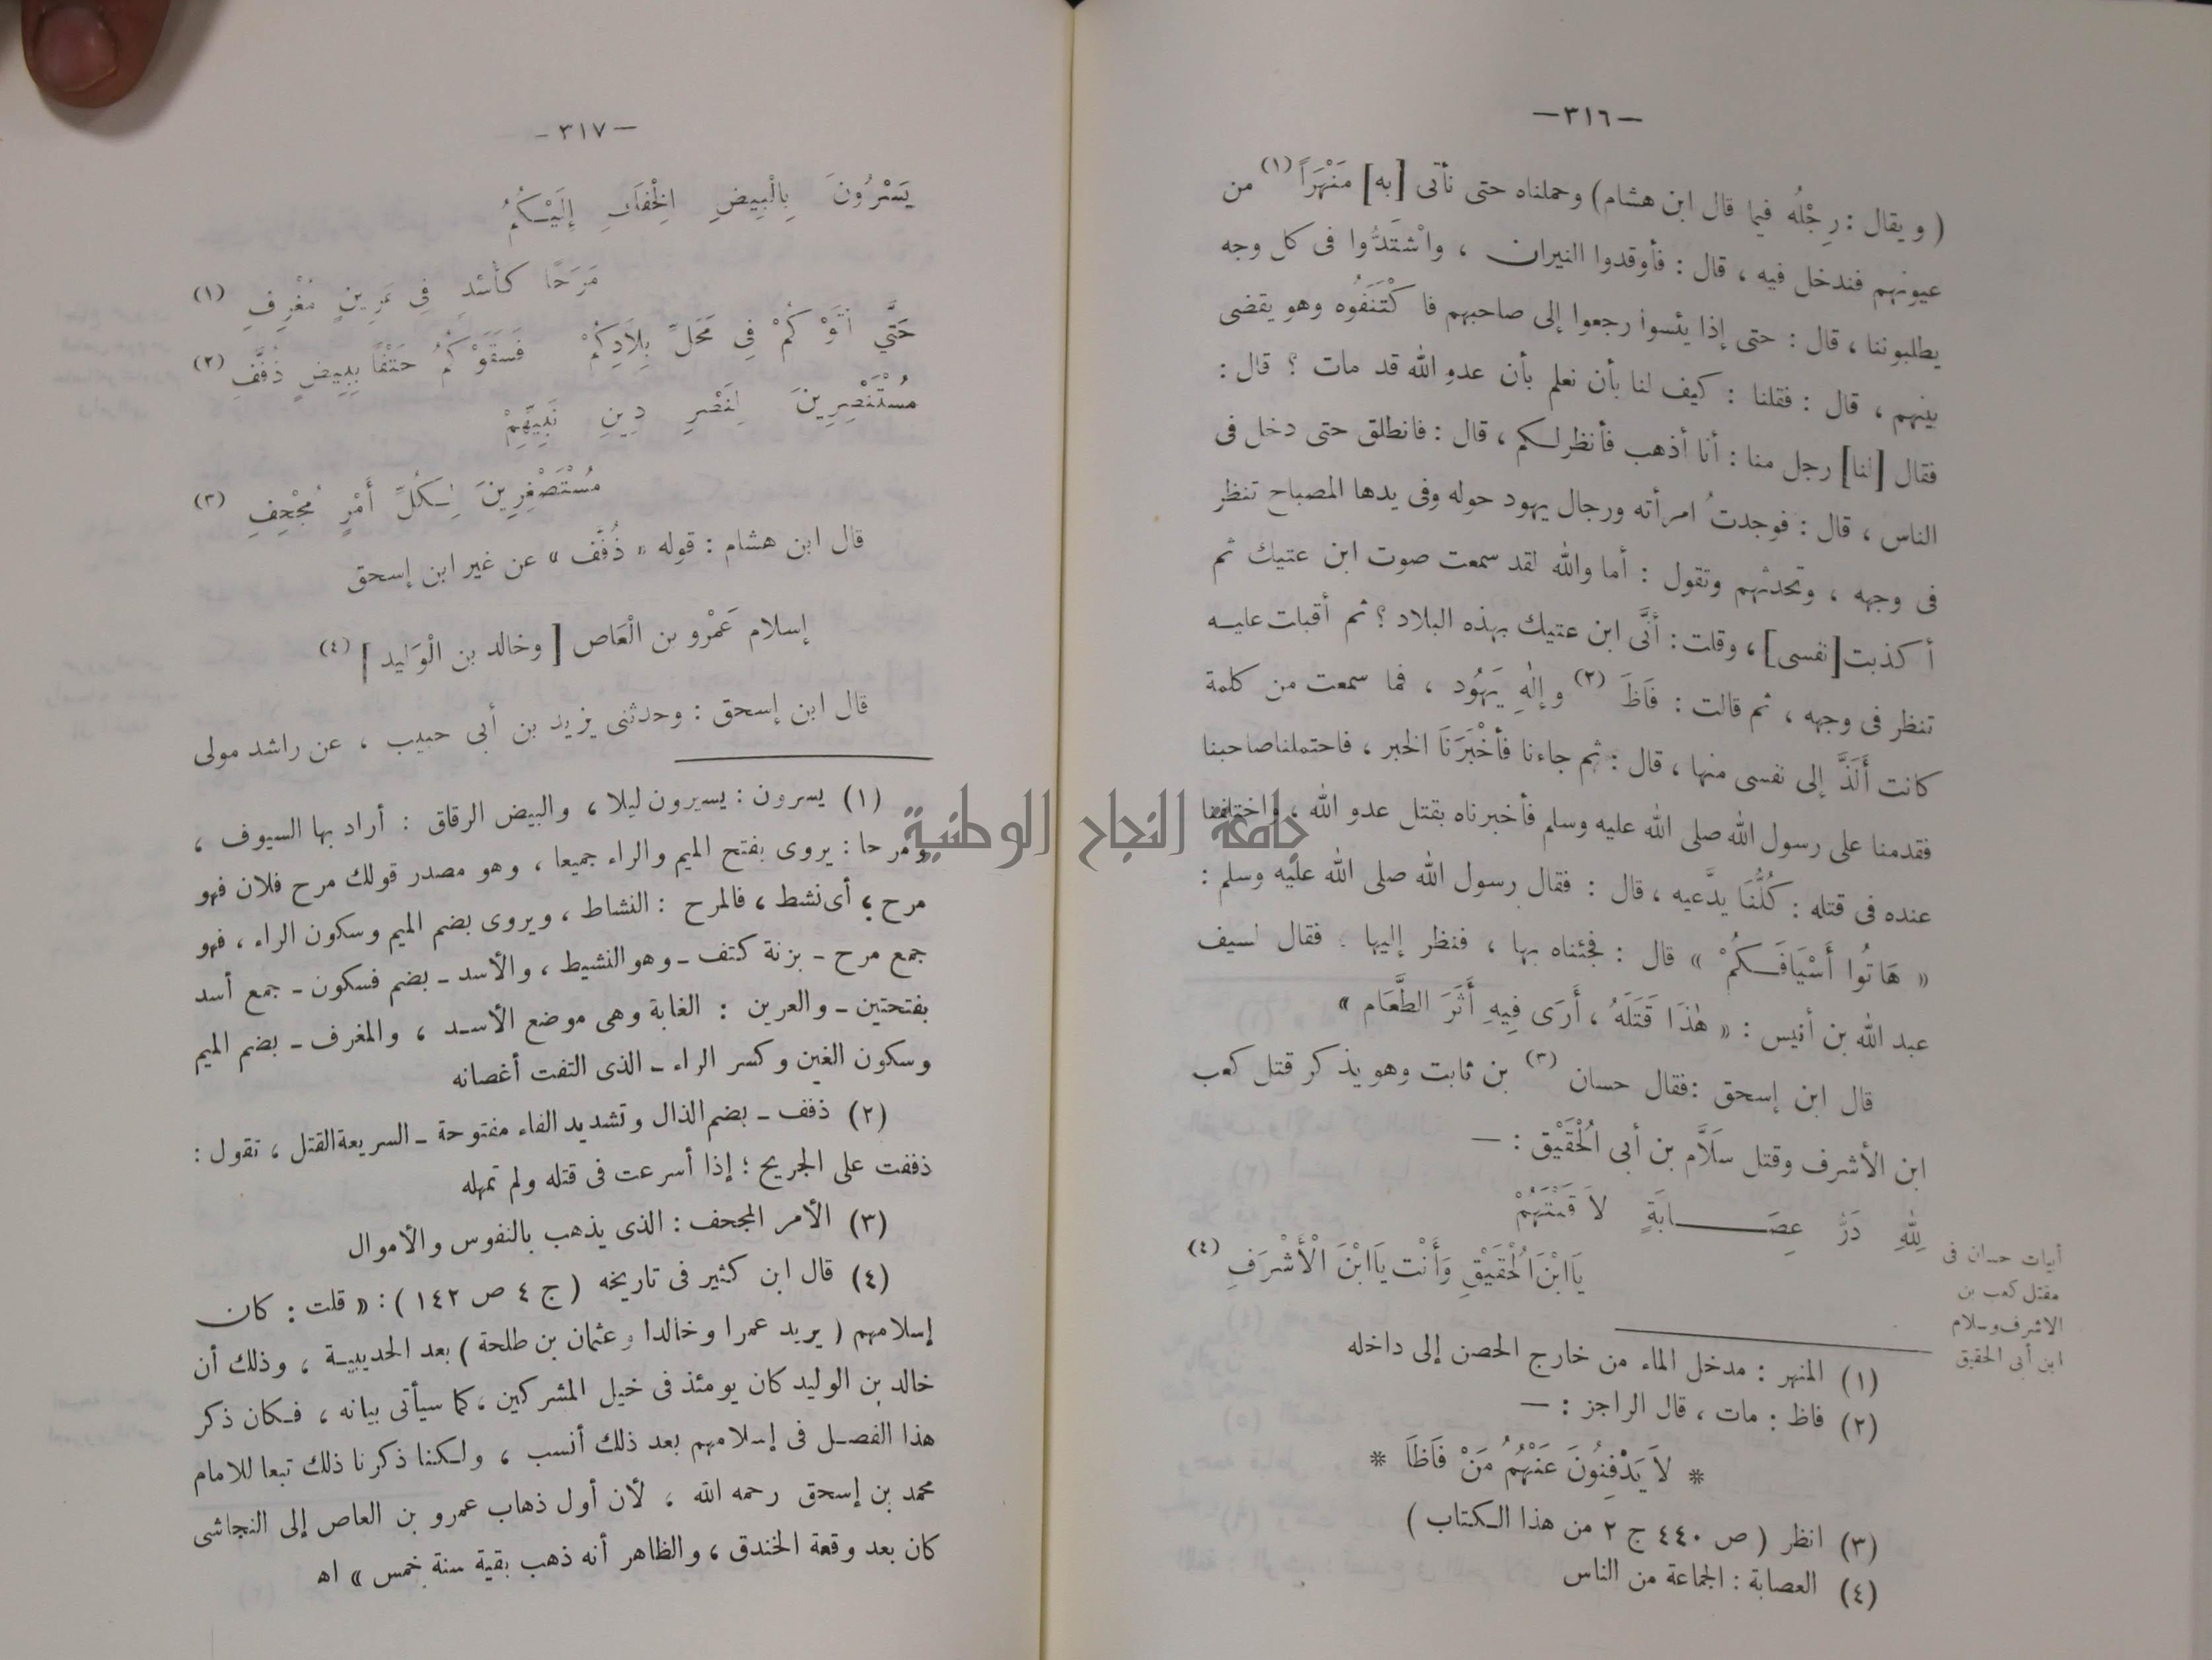 —٣١٦—
( ويقال : رِجْلُه فيما قال ابن هشام ) وحملناه حتى نأتى [به] مَنْهَرَاً (١) من
عيونهم فندخل فيه ، قال : فأوقدوا النيران ، واشْتَدُّوا فى كل وجه
يطلبوننا ، قال : حتى إذا يئسوا رجعوا إلى صاحبهم فاكْتَنَفُوه وهو يقضى
بينهم ، قال : فقلنا : كيف لنا بأن نعلم بأن عدو الله قد مات ؟ قال :
فقال [لنا] رجل منا : أنا أذهب فأنظر لكم ، قال : فانطلق حتى دخل فى
الناس ، قال : فوجدتُ امرأته ورجال يهود حوله وفى يدها المصباح تنظر
فى وجهه ، وتحدثهم وتقول : أما والله لقد سمعت صوت ابن عتيك ثم
أكذبت [نفسى] ، وقلت : أنَّى ابن عتيك بهذه البلاد ؟ ثم أقبلت عليـه
تنظر فى وجهه ، ثم قالت : فَاظَ (٢) وإلٰهِ يَهُود ، فما سمعت من كلمة
كانت أَلَذَّ إلى نفسى منها ، قال : ثم جاءنا فأَخْبَرَنَا الخبر ، فاحتملنا صاحبنا
فقدمنا على رسول الله صلى الله عليه وسلم فأخبرناه بقتل عدو الله ، واختلفنا
عنده فى قتله : كُلُّنَا يدَّعيه ، قال : فقال رسول الله صلى الله عليه وسلم :
« هَاتُوا أَسْيَافَـكُمْ » قال : فجئناه بها ، فنظر إليها . فقال لسيف
عبد الله بن أنيس : « هٰذَا قَتَلَهُ ، أَرَى فِيهِ أَثَرَ الطَّعَام »
قال ابن إسحق : فقال حسان (٣) بن ثابت وهو يذكر قتل كعب
ابن الأشرف وقتل سَلاَّم بن أبى الْحُقَيْق : —
لِلّٰهِ دَرُّ عِصَـــــابَةٍ لاَقَيْتَهُمْ
يَا ابْنَ الْحُقَيْقِ وَأَنْتَ يَا ابْنَ الْأَشْرَفِ (٤)
أبيات حسان فى
مقتل كعب بن
الاشرف وسلام
ابن أبى الحقيق
(١) المنهر : مدخل الماء من خارج الحصن إلى داخله
(٢) فاظ : مات ، قال الراجز : —
* لاَ يَدْفِنُونَ عَنْهُمُ مَنْ فَاظَا *
(٣) انظر ( ص ٤٤٠ ج ٢ من هذا الكتاب )
(٤) العصابة : الجماعة من الناس
—٣١٧—
يَسْرُونَ بِالْبِيضِ الْخِفَافِ إِلَيْـكُمُ
مَرَحًا كَأُسْدِ فِى عَرِينٍ مُغْرِفِ (١)
حَتَّى أَتَوْكُمْ فِى مَحَلِّ بِلاَدِكُمْ فَسَقَوْكُمُ حَتْفًا بِبِيضٍ ذُفَّفِ (٢)
مُسْتَنْصِرِينَ لِنَصْرِ دِينِ نَبِيِّهِمْ
مُسْتَصْغِرِينَ لِـكُلِّ أَمْرٍ مُجْحِفِ (٣)
قال ابن هشام : قوله « ذُفَّف » عن غير ابن إسحق
إسلام عَمْرو بن الْعَاص [ وخالد بن الْوَليد ] (٤)
قال ابن إسحق : وحدثنى يزيد بن أبى حبيب ، عن راشد مولى
(١) يسرون : يسيرون ليلا ، والبيض الرقاق : أراد بها السيوف ،
ومرحا : يروى بفتح الميم والراء جميعا ، وهو مصدر قولك مرح فلان فهو
مرح ، أى نشط ، فالمرح : النشاط ، ويروى بضم الميم وسكون الراء ، فهو
جمع مرح ـ بزنة كتف ـ وهو النشيط ، والأسد ـ بضم فسكون ـ جمع أسد
بفتحتين ـ والعرين : الغابة وهى موضع الأسـد ، والمغرف ـ بضم الميم
وسكون الغين وكسر الراء ـ الذى التفت أغصانه
(٢) ذفف ـ بضم الذال وتشديد الفاء مفتوحة ـ السريعة القتل ، تقول :
ذففت على الجريح ؛ إذا أسرعت فى قتله ولم تمهله
(٣) الأمر المجحف : الذى يذهب بالنفوس والأموال
(٤) قال ابن كثير فى تاريخه ( ج ٤ ص ١٤٢ ) : « قلت : كان
إسلامهم ( يريد عمرا وخالدا وعثمان بن طلحة ) بعد الحديبيـة ، وذلك أن
خالد بن الوليد كان يومئذ فى خيل المشركين ، كما سيأتى بيانه ، فـكان ذكر
هذا الفصـل فى إسلامهم بعد ذلك أنسب ، ولـكنا ذكرنا ذلك تبعا للامام
محمد بن إسحق رحمه الله ، لأن أول ذهاب عمرو بن العاص إلى النجاشى
كان بعد وقعة الخندق ، والظاهر أنه ذهب بقية سنة خمس » اه
جامعة النجاح الوطنية